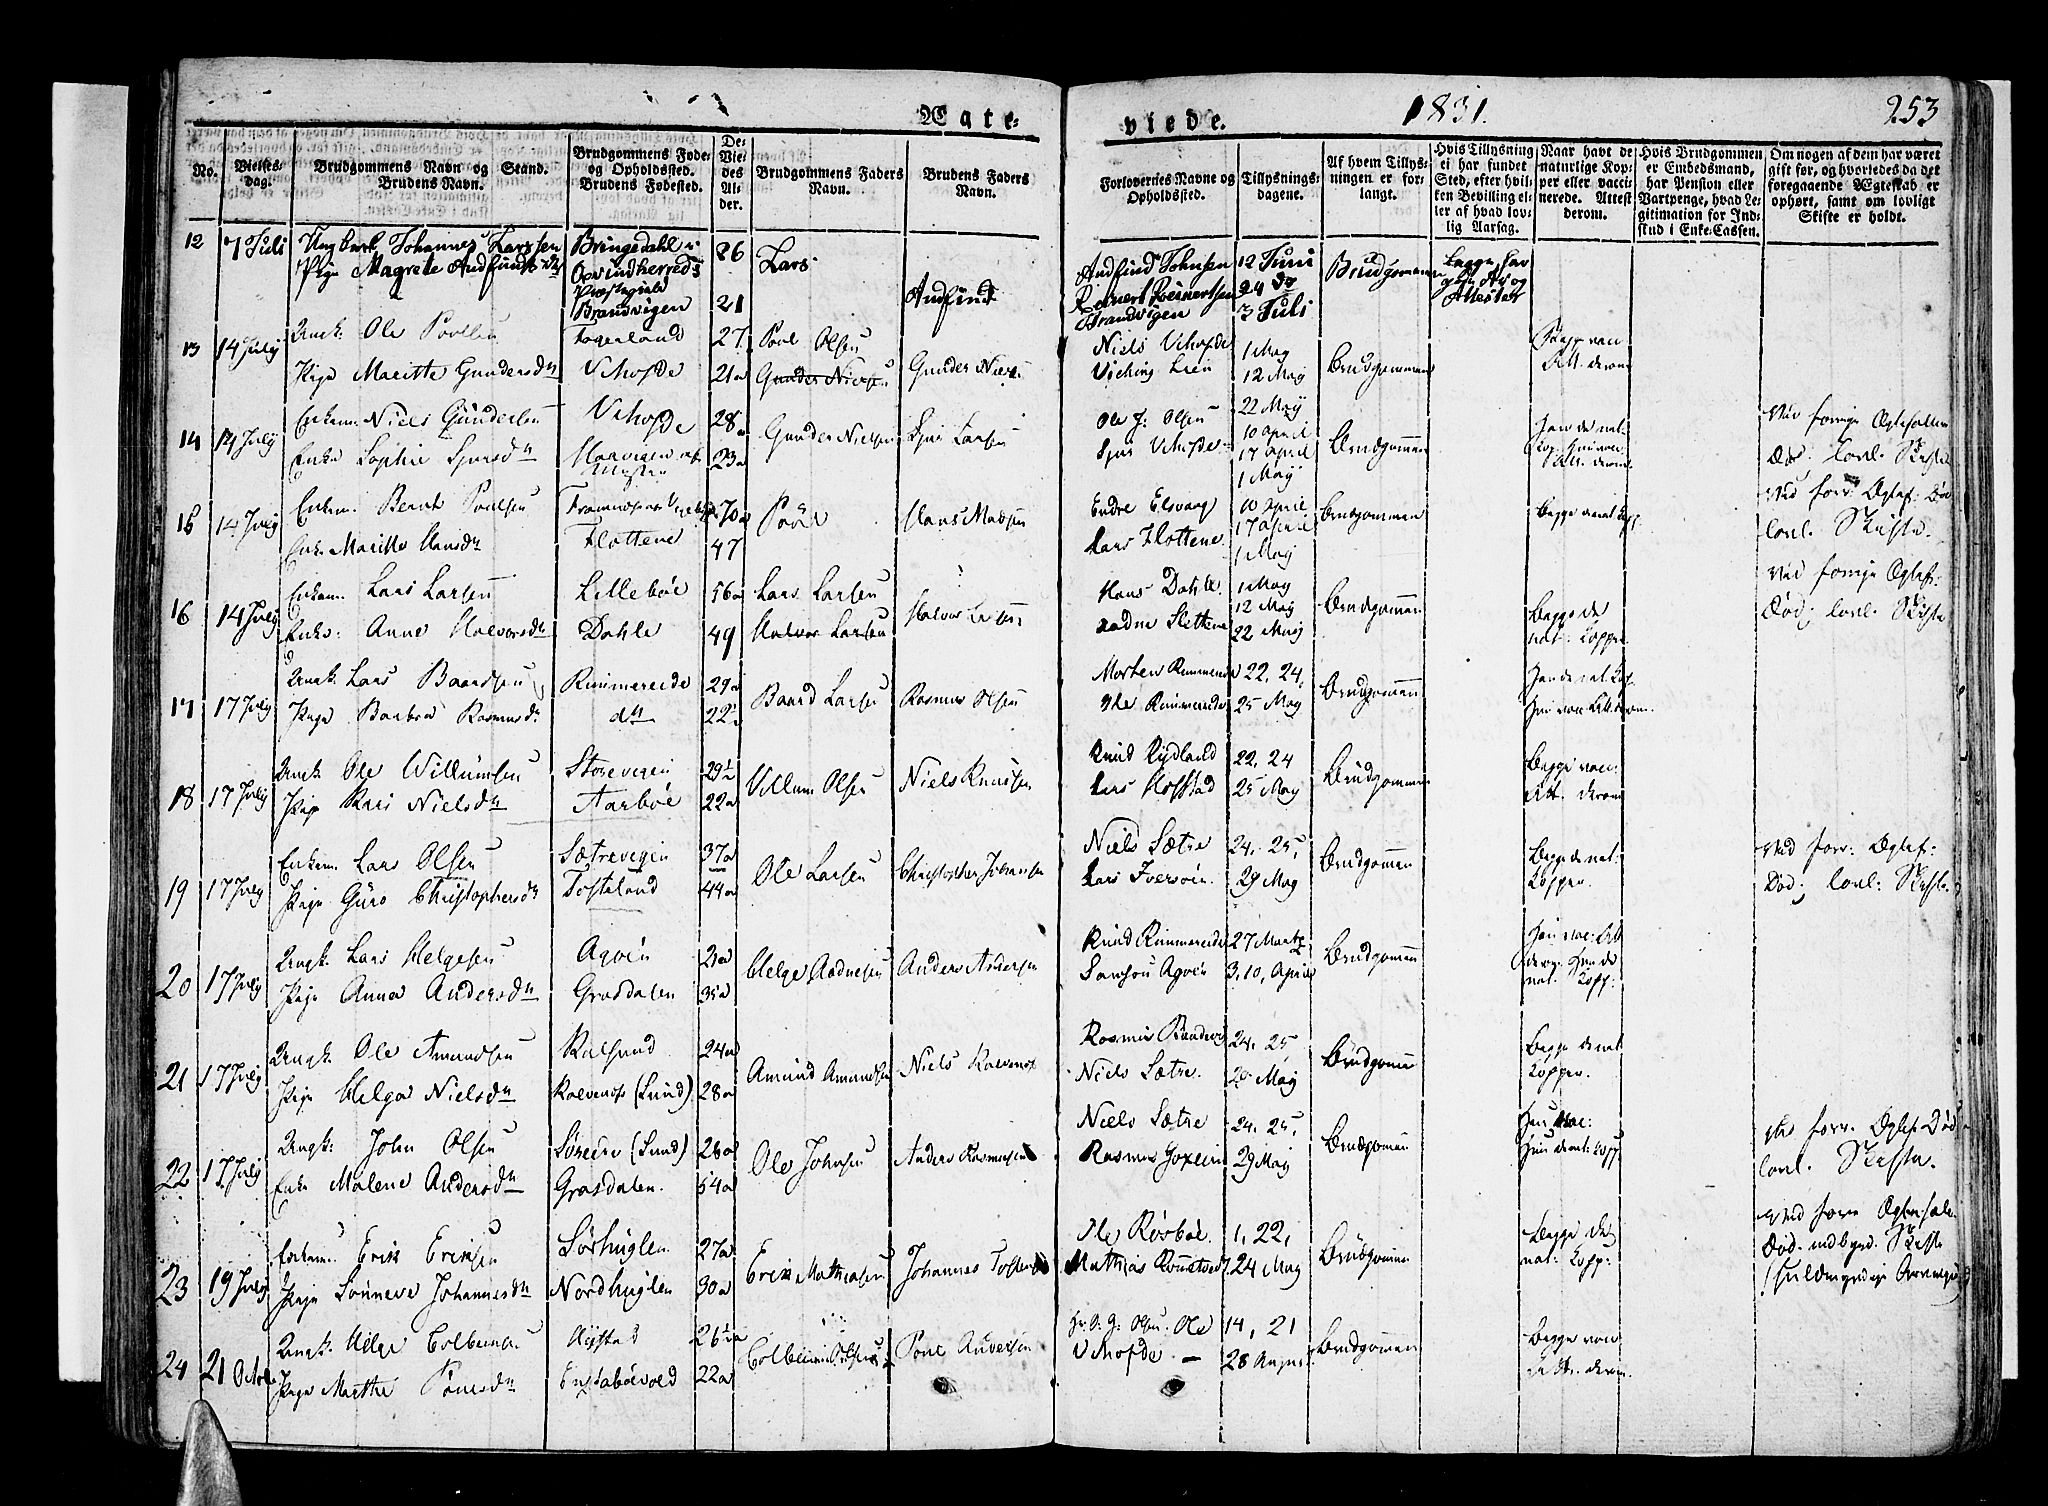 Ægte-
viede.
1831.
253
No.
Vielses-
dag.
Brudgommens Navn og Stand.
Brudens Navn.
Brudgommens Føde-
og Opholdssted.
Brudens Fødested.
De
Vie-
des
Al-
der.
Brudgommens Faders
Navn.
Brudens Faders
Navn.
Forlovernes Navne og
Opholdssted.
Tillysnings-
dagene.
Af hvem Tillys-
ningen er for-
langt.
Hvis Tillysning
ei har fundet
Sted, efter hvil-
ken Bevilling el-
ler af hvad lov-
lig Aarsag.
Naar havt de
naturlige Kop-
per eller vacci-
nerede. Attest
derom.
Hvis Brudgommen
er Embedsmand,
har Pension eller
Vartpenge, hvad Le-
gitimation for Ind-
skud i Enke-Cassen.
Om nogen af dem har været
gift før, og hvorledes da det
foregaaende Ægteskab er
ophørt, samt om lovligt
Skifte er holdt.
12 7 Juli Ungkarl Johannes Larssen
Pige Magrete Audfindsdr
Bringedahl i
Præstegield
Brandvigen
26
21
Lars
Audfind
Audfind Johnsen
Reinert Reinertsen
Brandvigen
12 Juni
24 do
3 Juli
Brudgommen
Begge har
Attester
13 14 July Ungk: Ole Povelsen
Pige Maritte Gundersdr
Fogerland
Vihofde
27
21a
Povl Olsen
Gunder Nielsen
Gunder Nielsen
Niels Vihofde
Viching Lien
1 May
12 May
22 May
Brudgommen
Begge vac:
Att. derom
14 14 July Enkem: Niels Gundersen
Enke Sophie Sjursdr
Vihofde
28a
23a
Gunder Nielsen
Sjur Larsen
Ole J: Olsen
Sjur Vihofde
10 April
17 April
1 May
Brudgommen
Han de nat:
Kop. Hun vac:
Att. derom
Ved forrige Ægtefælles
Død; lovl. Skifte
15 14 July Enkem: Bernt Povelsen
Enke Maritte Hansdr
Flottene
70a
47
Povel
Hans Madsen
Endre Elsvaag
Lars Flottene
10 April
17 April
1 May
Brudgommen
Begge de nat. Kopp.
Ved forr: Ægtef: Død
lovl. Skifte.
16 14 July Enkem: Lars Larsen
Enke: Anne Halvorsdr
Lillebøe
Dahle
56a
49
Lars Larsen
Halvor Larsen
Halvor Larsen
Hans Dahle
Aadne Slettene
1 May
12 May
22 May
Brudgommen
Begge de
nat: Koppe
Ved forrige Ægtef:
Død; lovl. Skifte
17 17 July Ungk: Lars Baardsen
Pige Barbra Rasmusdr
Rimmereide
do
29a
22½
Baard Larsen
Rasmus Olsen
Morten Rimmereide
Ole Rimmereide
22, 24,
25 May
Brudgommen
Han de nat. Kop.
Hun vac. Att. derom.
18 17 July Ungk: Ole Willumsen
Pige Kari Nielsdr
Storevigen
Aarbøe
29½
22a
Villum Olsen
Niels Knudsen
Knud Rydland
Lars Hofstad
22, 24
25 May
Brudgommen
Begge vac:
Att. derom
19 17 July Enkem: Lars Olsen
Pige Guro Christophersdr
Sætrevigen
Tosteland
37a
44a
Ole Larsen
Christopher Johansen
Niels Sætre
Lars Iversøen.
24, 25,
29 May
Brudgommen
Begge de nat:
Kopper.
Ved forr: Ægtef:
Død; lovl: Skifte
20 17 July Ungk: Lars Helgesen
Pige Anna Andersdr
Agøen
Grasdalen
21a
35a
Helge Aadnesen
Anders Andersen
Knud Rimmereide
Samson Agøen
27 Marts
3, 10, April
Brudgommen
Han vac: Att
derom: Hun de
nat: Kopp:
21 17 July Ungk: Ole Amundsen
Pige Helga Nielsdr
Kalsund
Kalvenæs (Sund)
24a
28a
Amund Amundsen
Niels Kalvenæs
Niels Sætre.
24, 25,
29 May
Brudgommen
Begge de nat:
Kopper.
22 17 July Ungk: John Olsen
Enke Malene Andersdr
Søreide (Sund)
Grasdalen.
26a
54a
Ole Johnsen
Anders Rasmussen
Niels Sætre
24, 25,
29 May
Brudgommen
Han vac:
Hun de nat: Kopp
forr. Ægtef. Død
lovl. Skifte.
23 19 July Enkem: Erik Eriksen
Pige Sønneve Johannesdr
Sørhuglen
Nordhuglen
27a
30a
Erik Mathiasen
Johannes Tostensen
Ole Rørbøe.
Mathias Rørstved
1, 22,
24 May
Brudgommen
Begge de
nat: Kopp:
Ved forr Ægtefæl.
Død. Skifte
24 21 Octob Ungk: Helge Colbeensen
Pige Marthe Povelsdr
Nystad
Engsbøevold
26½a
22a
Colbeen Olsen
Povl Andersen
Ole
Vihofde
14, 21
28 August
Brudgommen
Begge vac:
Att. derom.